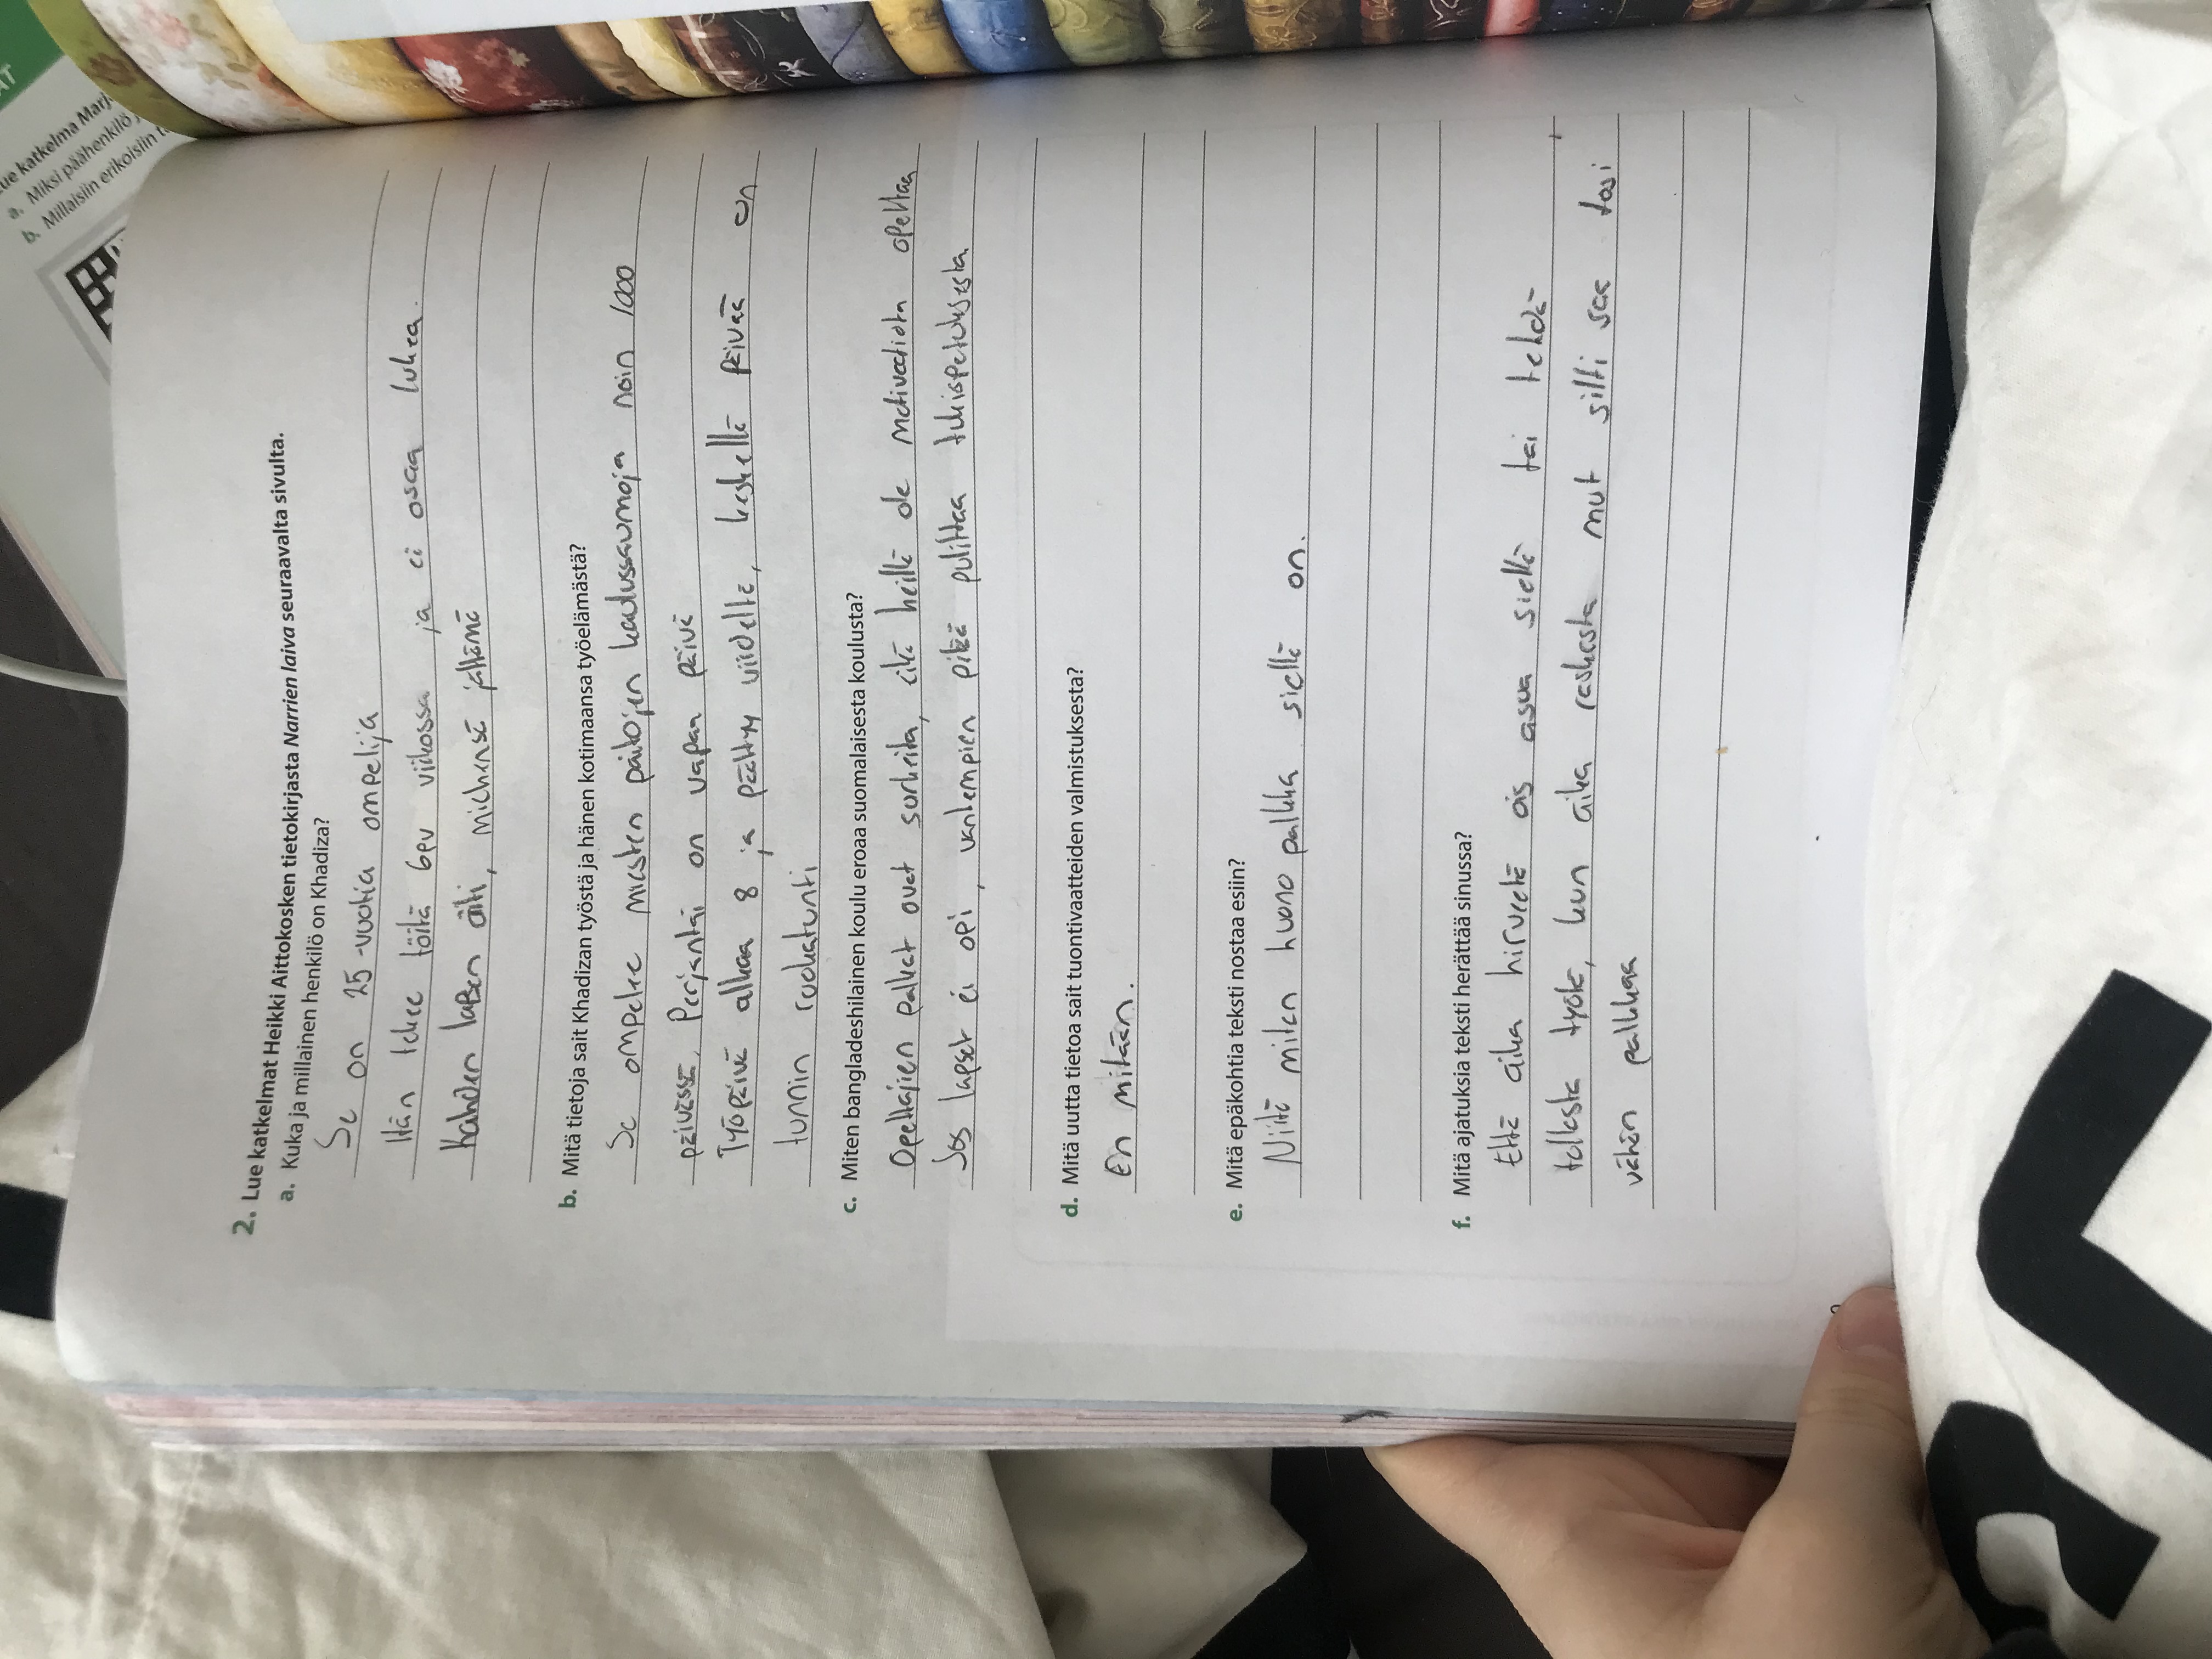 ue katkelma Marj
a. Miksi päähenkilö
b. Millaisiin erikoisiin t
2. Lue katkelmat Heikki Aittokosken tietokirjasta Narrien laiva seuraavalta sivulta.
a. Kuka ja millainen henkilö on Khadiza?
Se on 25-vuotia ompelija
Hän tekee töitä 6pv viikossa ja ei osaa lukea.
Kahden lapsen äiti, miehensä jättämä
b. Mitä tietoja sait Khadizan työstä ja hänen kotimaansa työelämästä?
Se ompelee miesten paitojen kaulussaumoja noin 1000
päivässä. Perjantai on vapaa päivä
Työpäivä alkaa 8 ja päättyy viidelle, keskellä päivää on
tunnin ruokatunti
c. Miten bangladeshilainen koulu eroaa suomalaisesta koulusta?
Opettajien palkat ovat surkeita, eikä heillä ole motivaatiota opettaa
Jos lapset ei opi, vanhempien pitää pulittaa tukiopetuksesta
d. Mitä uutta tietoa sait tuontivaatteiden valmistuksesta?
En mitään.
e. Mitä epäkohtia teksti nostaa esiin?
Niitä miten huono palkka siellä on.
f. Mitä ajatuksia teksti herättää sinussa?
Että aika hirveetä ois asua siellä tai tehdä
tollasta työtä, kun aika raskasta mut silti saa tosi
vähän palkkaa